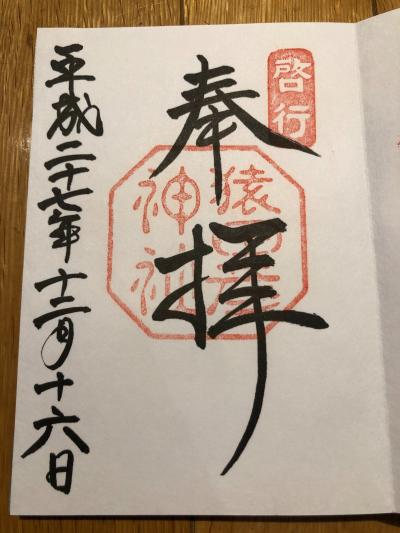 啓行
奉拝
猿田彦
神社
平成二十七年十二月十六日